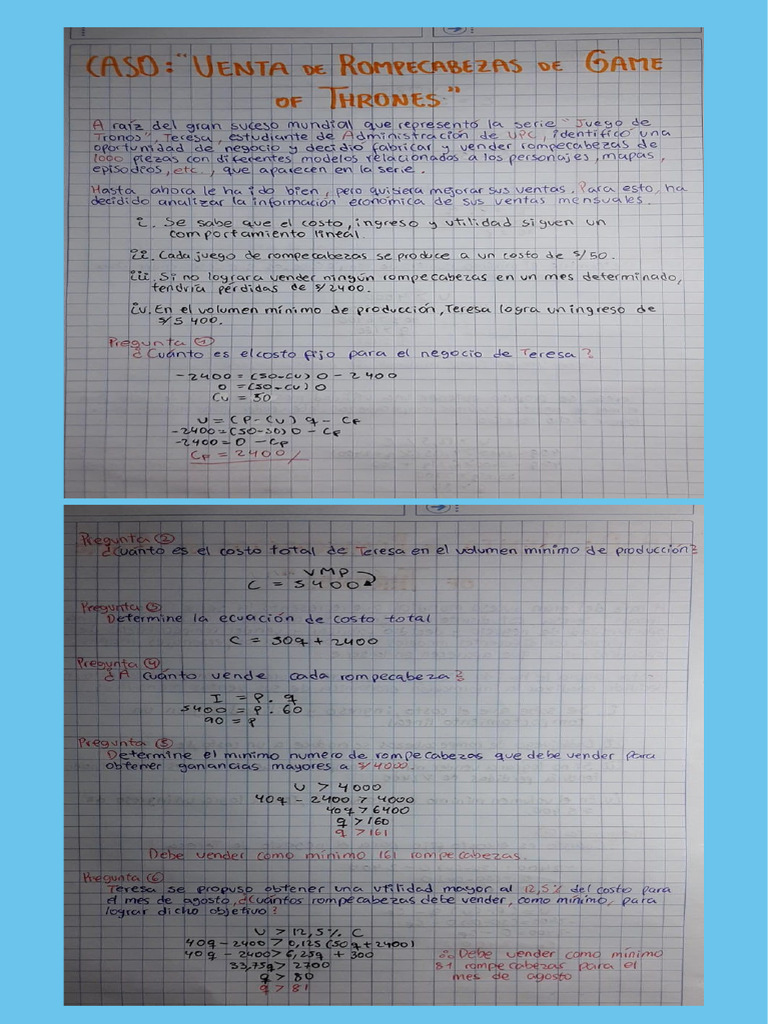 CASO: "VENTA DE ROMPECABEZAS DE GAME
OF THRONES"
A raíz del gran suceso mundial que representó la serie "Juego de
Tronos", Teresa, estudiante de Administración de UPC, identificó una
oportunidad de negocio y decidió fabricar y vender rompecabezas de
1000 piezas con diferentes modelos relacionados a los personajes, mapas,
episodios, etc., que aparecen en la serie.
Hasta ahora le ha ido bien, pero quisiera mejorar sus ventas. Para esto, ha
decidido analizar la información económica de sus ventas mensuales.
i. Se sabe que el costo, ingreso y utilidad siguen un
comportamiento lineal.
ii. Cada juego de rompecabezas se produce a un costo de S/50.
iii. Si no lograra vender ningún rompecabezas en un mes determinado,
tendría pérdidas de S/2400.
iv. En el volumen mínimo de producción, Teresa logra un ingreso de
S/5 400.
Pregunta ①
¿Cuánto es el costo fijo para el negocio de Teresa?
-2400 = (50-Cu) 0 - 2 400
0 = (50-Cu) 0
Cu = 50
U = (P-Cu) q - CF
-2400 = (50-50) 0 - CF
-2400 = 0 - CF
CF = 2400
Pregunta ②
¿Cuánto es el costo total de Teresa en el volumen mínimo de producción?
VMP
C = 5400
Pregunta ③
Determine la ecuación de costo total
C = 50q + 2400
Pregunta ④
¿A cuánto vende cada rompecabeza?
I = P. q
5400 = P. 60
90 = P
Pregunta ⑤
Determine el mínimo numero de rompecabezas que debe vender para
obtener ganancias mayores a S/4000.
U > 4000
40q - 2400 > 4000
40q > 6400
q > 160
q > 161
Debe vender como mínimo 161 rompecabezas.
Pregunta ⑥
Teresa se propuso obtener una utilidad mayor al 12,5% del costo para
el mes de agosto, ¿Cuántos rompecabezas debe vender, como mínimo, para
lograr dicho objetivo?
U > 12,5% C
40q - 2400 > 0,125 (50q + 2400)
40q - 2400 > 6,25q + 300
33,75q > 2700
q > 80
q > 81
∴ Debe vender como mínimo
81 rompecabezas para el
mes de agosto